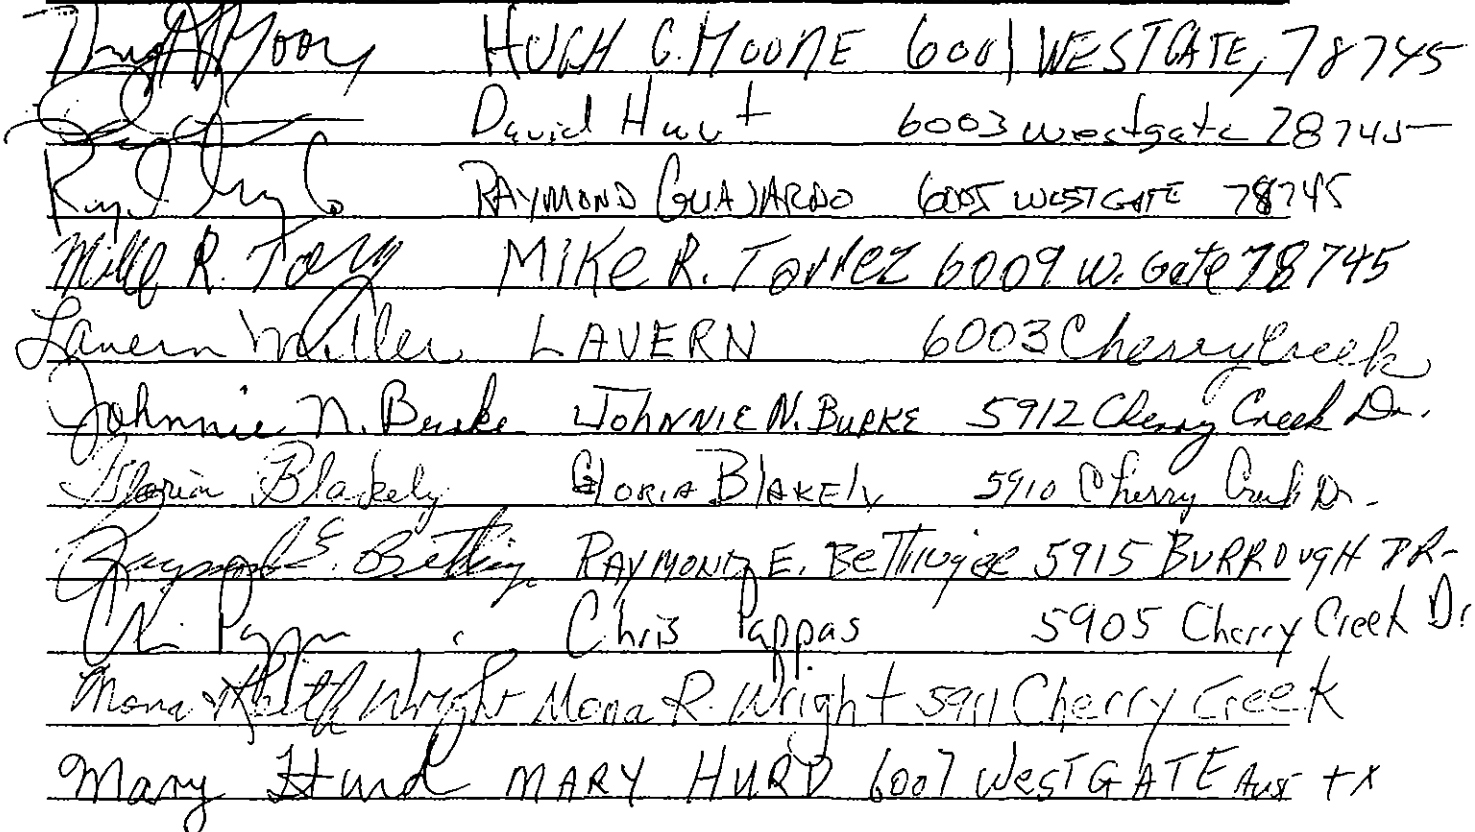 HUGH G. MOORE 6001 WESTGATE, 78745
David Hunt 6003 westgate 78745
RAYMOND GUAJARDO 6005 WESTGATE 78745
Mike R. Torrez MIKe R. Torrez 6009 W. Gate 78745
Lavern Miller LAVERN 6003 Cherry Creek
Johnnie N. Burke JOHNNIE N. BURKE 5912 Cherry Creek Dr.
Gloria Blakely GLORIA BLAKEly 5910 Cherry Creek Dr.
Raymond E. Bettinger RAYMOND E. BeTTinger 5915 BURROUGH DR-
Chris Pappas Chris Pappas 5905 Cherry Creek Dr
Mona Wright Mona R. Wright 5911 Cherry Creek
Mary Hurd MARY HURD 6007 WesTGATE Aust tx